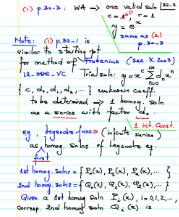 (1) p. 30-3: WA → one valid soln 30-2
c = , r = 1
y = e
same as (2)
p. 30-3
Note: (1) p. 30-1 is
similar to starting pt
for method of Frobenius (see X. 2003)
Trial soln: y = c x^r Σ d x^n
{ c, d, d, d, ... } continuous coeff.
to be determined → 1 homog. soln
as a series with factor d.
1 int. const.
eg. Legendre (infinite series)
as homog. solns of Legendre eq.
first
1st homog. solns = { P₀(x), P₁(x), P₂(x), ... }
2nd homog. solns = { Q₀(x), Q₁(x), Q₂(x), ... }
Given a 1st homog. soln Pᵢ(x), i = 0,1,2,...,
corresp. 2nd homog. soln Qᵢ(x) is